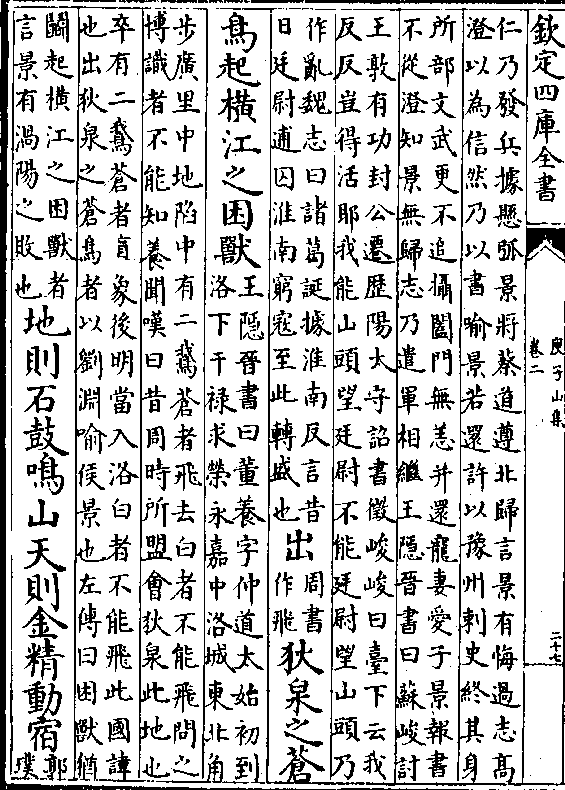 欽定四庫全書
庾子山集
卷二
二十七
仁乃發兵據懸瓠景將蔡道遵北歸言景有悔過志高
澄以為信然乃以書喻景若還許以豫州刺史終其身
所部文武更不追攝闔門無恙并還寵妻愛子景報書
不從澄知景無歸志乃遣軍相繼王隱晉書曰蘇峻討
王敦有功封公遷歴陽太守詔書徵峻峻曰臺下云我
反反豈得活耶我能山頭望廷尉不能廷尉望山頭乃
作亂魏志曰諸葛誕據淮南反言昔
日廷尉逋囚淮南窮寇至此轉盛也
出
周書
作飛
狄泉之蒼
鳥起横江之困獸
王隱晉書曰董養字仲道太始初到
洛下干禄求榮永嘉中洛城東北角
步廣里中地陷中有二鵞蒼者飛去白者不能飛問之
博識者不能知養聞嘆曰昔周時所盟會狄泉此地也
卒有二鵞蒼者象後明當入洛白者不能飛此國諱
也出狄泉之蒼鳥者以劉淵喻侯景也左傳曰困獸猶
鬭起横江之困獸者
言景有渦陽之敗也
地則石鼓鳴山天則金精動宿
郭
璞